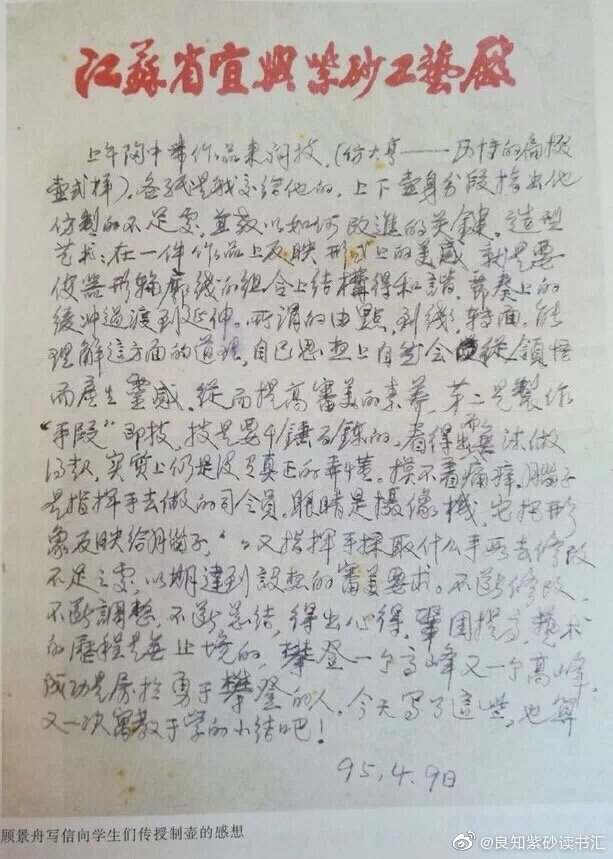 江蘇省宜興紫砂工藝廠
上午陶中帶作品來詢技,(仿大亨——
壶式样)。各子是我交给他的,上下壶身分段指出他
仿製的不足處,并教以如何改進的关鍵。造型
艺术:在一件作品上反映形式上的美感,就是要
使器形輪廓线的组合上结構得和諧,節奏上的
缓冲過渡到延伸。所謂的由點,到綫,轉面。能
理解這方面的道理,自己思想上自然会從領悟
而產生靈感,從而提高審美的素养。第二是製作
“手段”即技,技是要千錘百鍊的。看得出而無法做
得款,实質上仍是没有真正的弄懂。摸不着痛痒,腦子
是指揮手去做的司令員,眼睛是摄像機,它把形
象反映给腦子,又指揮手採取什么手段去修改
不足之處,以期達到設想的審美要求。不斷修改,
不斷調整,不斷总结,得出心得,鞏固提高,藝术
的歷程是無止境的,攀登一个高峰又一个高峰,
成功是属於勇于攀登的人。今天写了這些,也算
又一次寓教于学的小结吧!
95.4.9日
顾景舟写信向学生们传授制壶的感想
@良知紫砂读书汇